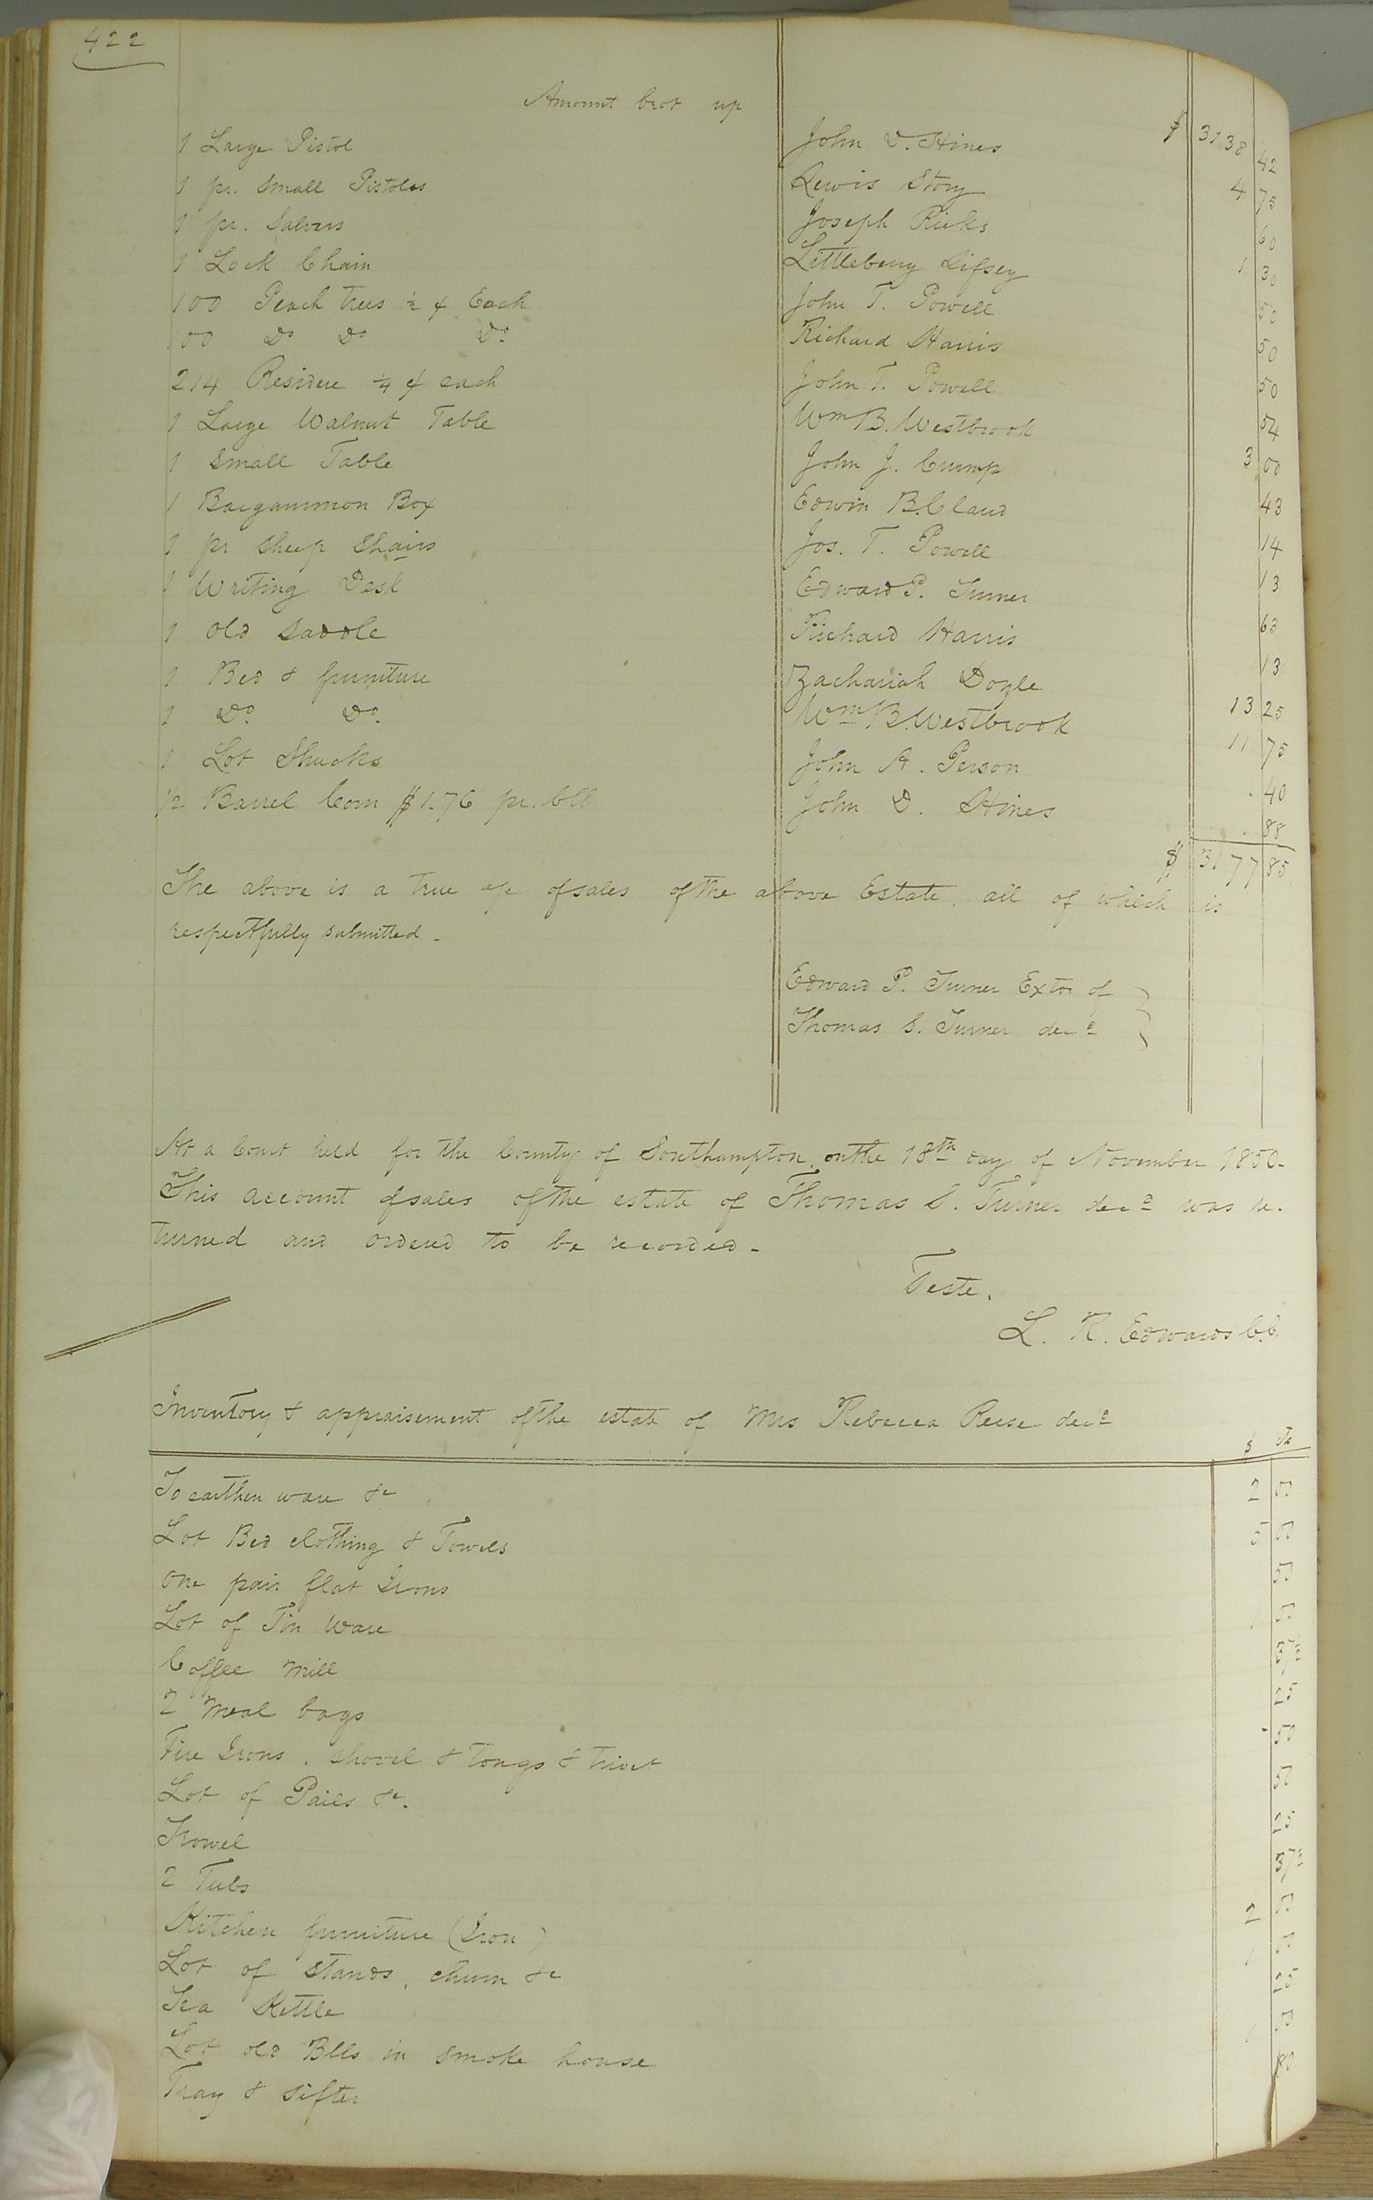 422
Amount brot up $ 3138 42
1 Large Pistol John D. Hines 4 75
1 pr. Small Pistoles Lewis Story 60
1 pr. Salvers Joseph Ricks 1 30
1 Lock Chain Littlebury Lifsey 50
100 Peach trees ½ ¢ Each John T. Powell 50
100 Do Do Do Richard Harris 50
214 Residue ¼ ¢ each John T. Powell 54
1 Large Walnut Table Wm B. Westbrook 3 00
1 Small Table John J. Crump 43
1 Bargammon Box Edwin B. Claud 14
1 pr Sheep Shairs Jos. T. Powell 13
1 Writing Desk Edward P. Turner 63
1 Old Saddle Richard Harris 13
1 Bed & furniture Zachariah Doyle 13 25
1 Do. Do. Wm B. Westbrook 11 75
1 Lot Shucks John A. Person 40
½ Barrel Corn $1.76 pr. bll John D. Hines 88
$ 3177 85
The above is a true a/c of sales of the above Estate, all of which is
respectfully submitted.
Edward P. Turner Extor of
Thomas S. Turner decd
At a Court held for the County of Southampton, on the 18th day of November 1850.
This account of sales of the estate of Thomas S. Turner decd was re-
turned and ordered to be recorded.
Teste.
L. R. Edwards C.C.
Inventory & appraisement of the estate of Mrs Rebecca Reese decd
$ cts
To earthen ware &c 2 00
Lot Bed clothing & Towels 5 00
One pair flat Irons 50
Lot of Tin Ware 1 00
Coffee Mill 37½
2 Meal bags 25
Fire Irons, Shovel & tongs & trivet 50
Lot of Pails &c. 50
Trowel 25
2 Tubs 37½
Kitchen furniture (Iron) 2 00
Lot of stands, churn &c 1 00
Tea Kettle 25
Lot old Blls in smoke house 1 00
Tray & sifter